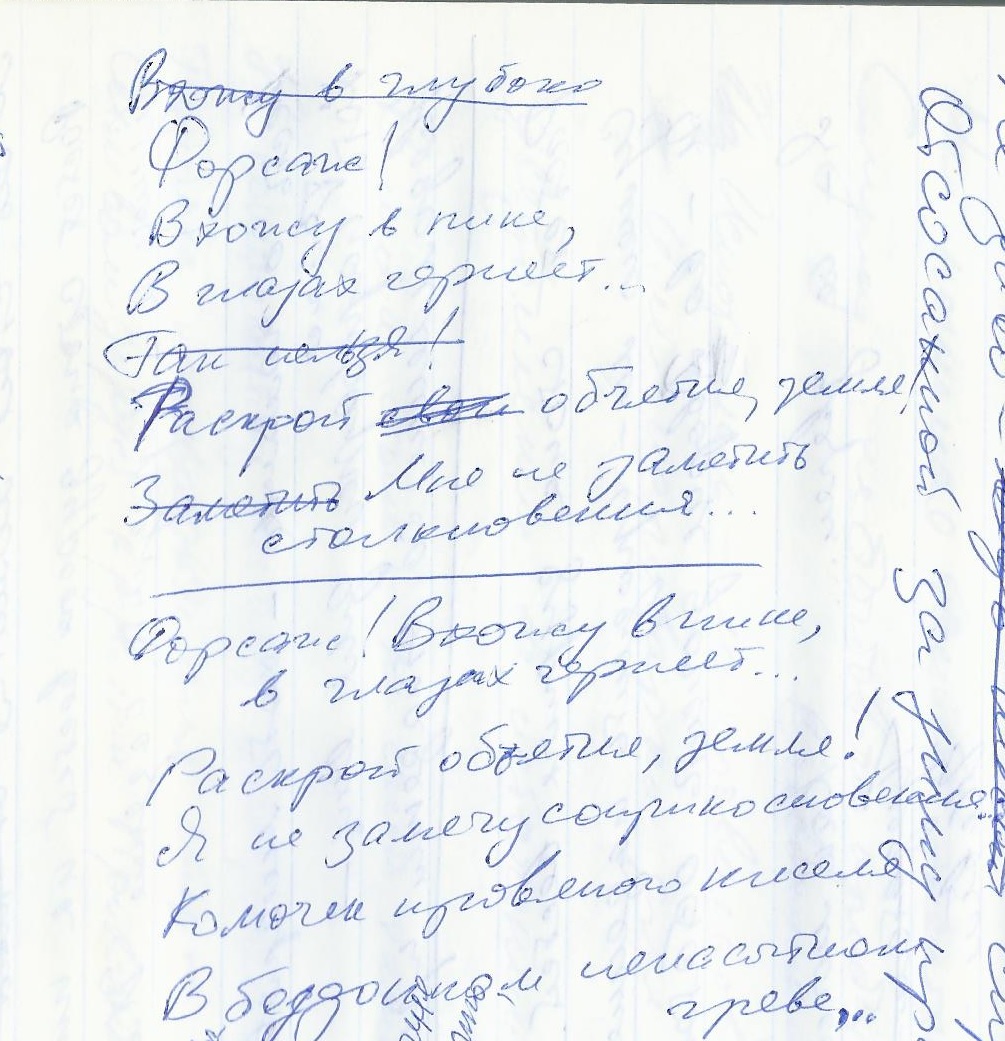 Вхожу в глубоко
Форсаж!
Вхожу в пике,
В глазах чернеет...
Так нельзя!
Раскрой свои объятия, земля!
Заметить Мне не заметить
столкновения...
Форсаж! Вхожу в пике,
в глазах чернеет...
Раскрой объятия, земля!
Я не замечу соприкосновения:
Комочек кровяного киселя
В бездонном ненасытном
чреве...
За